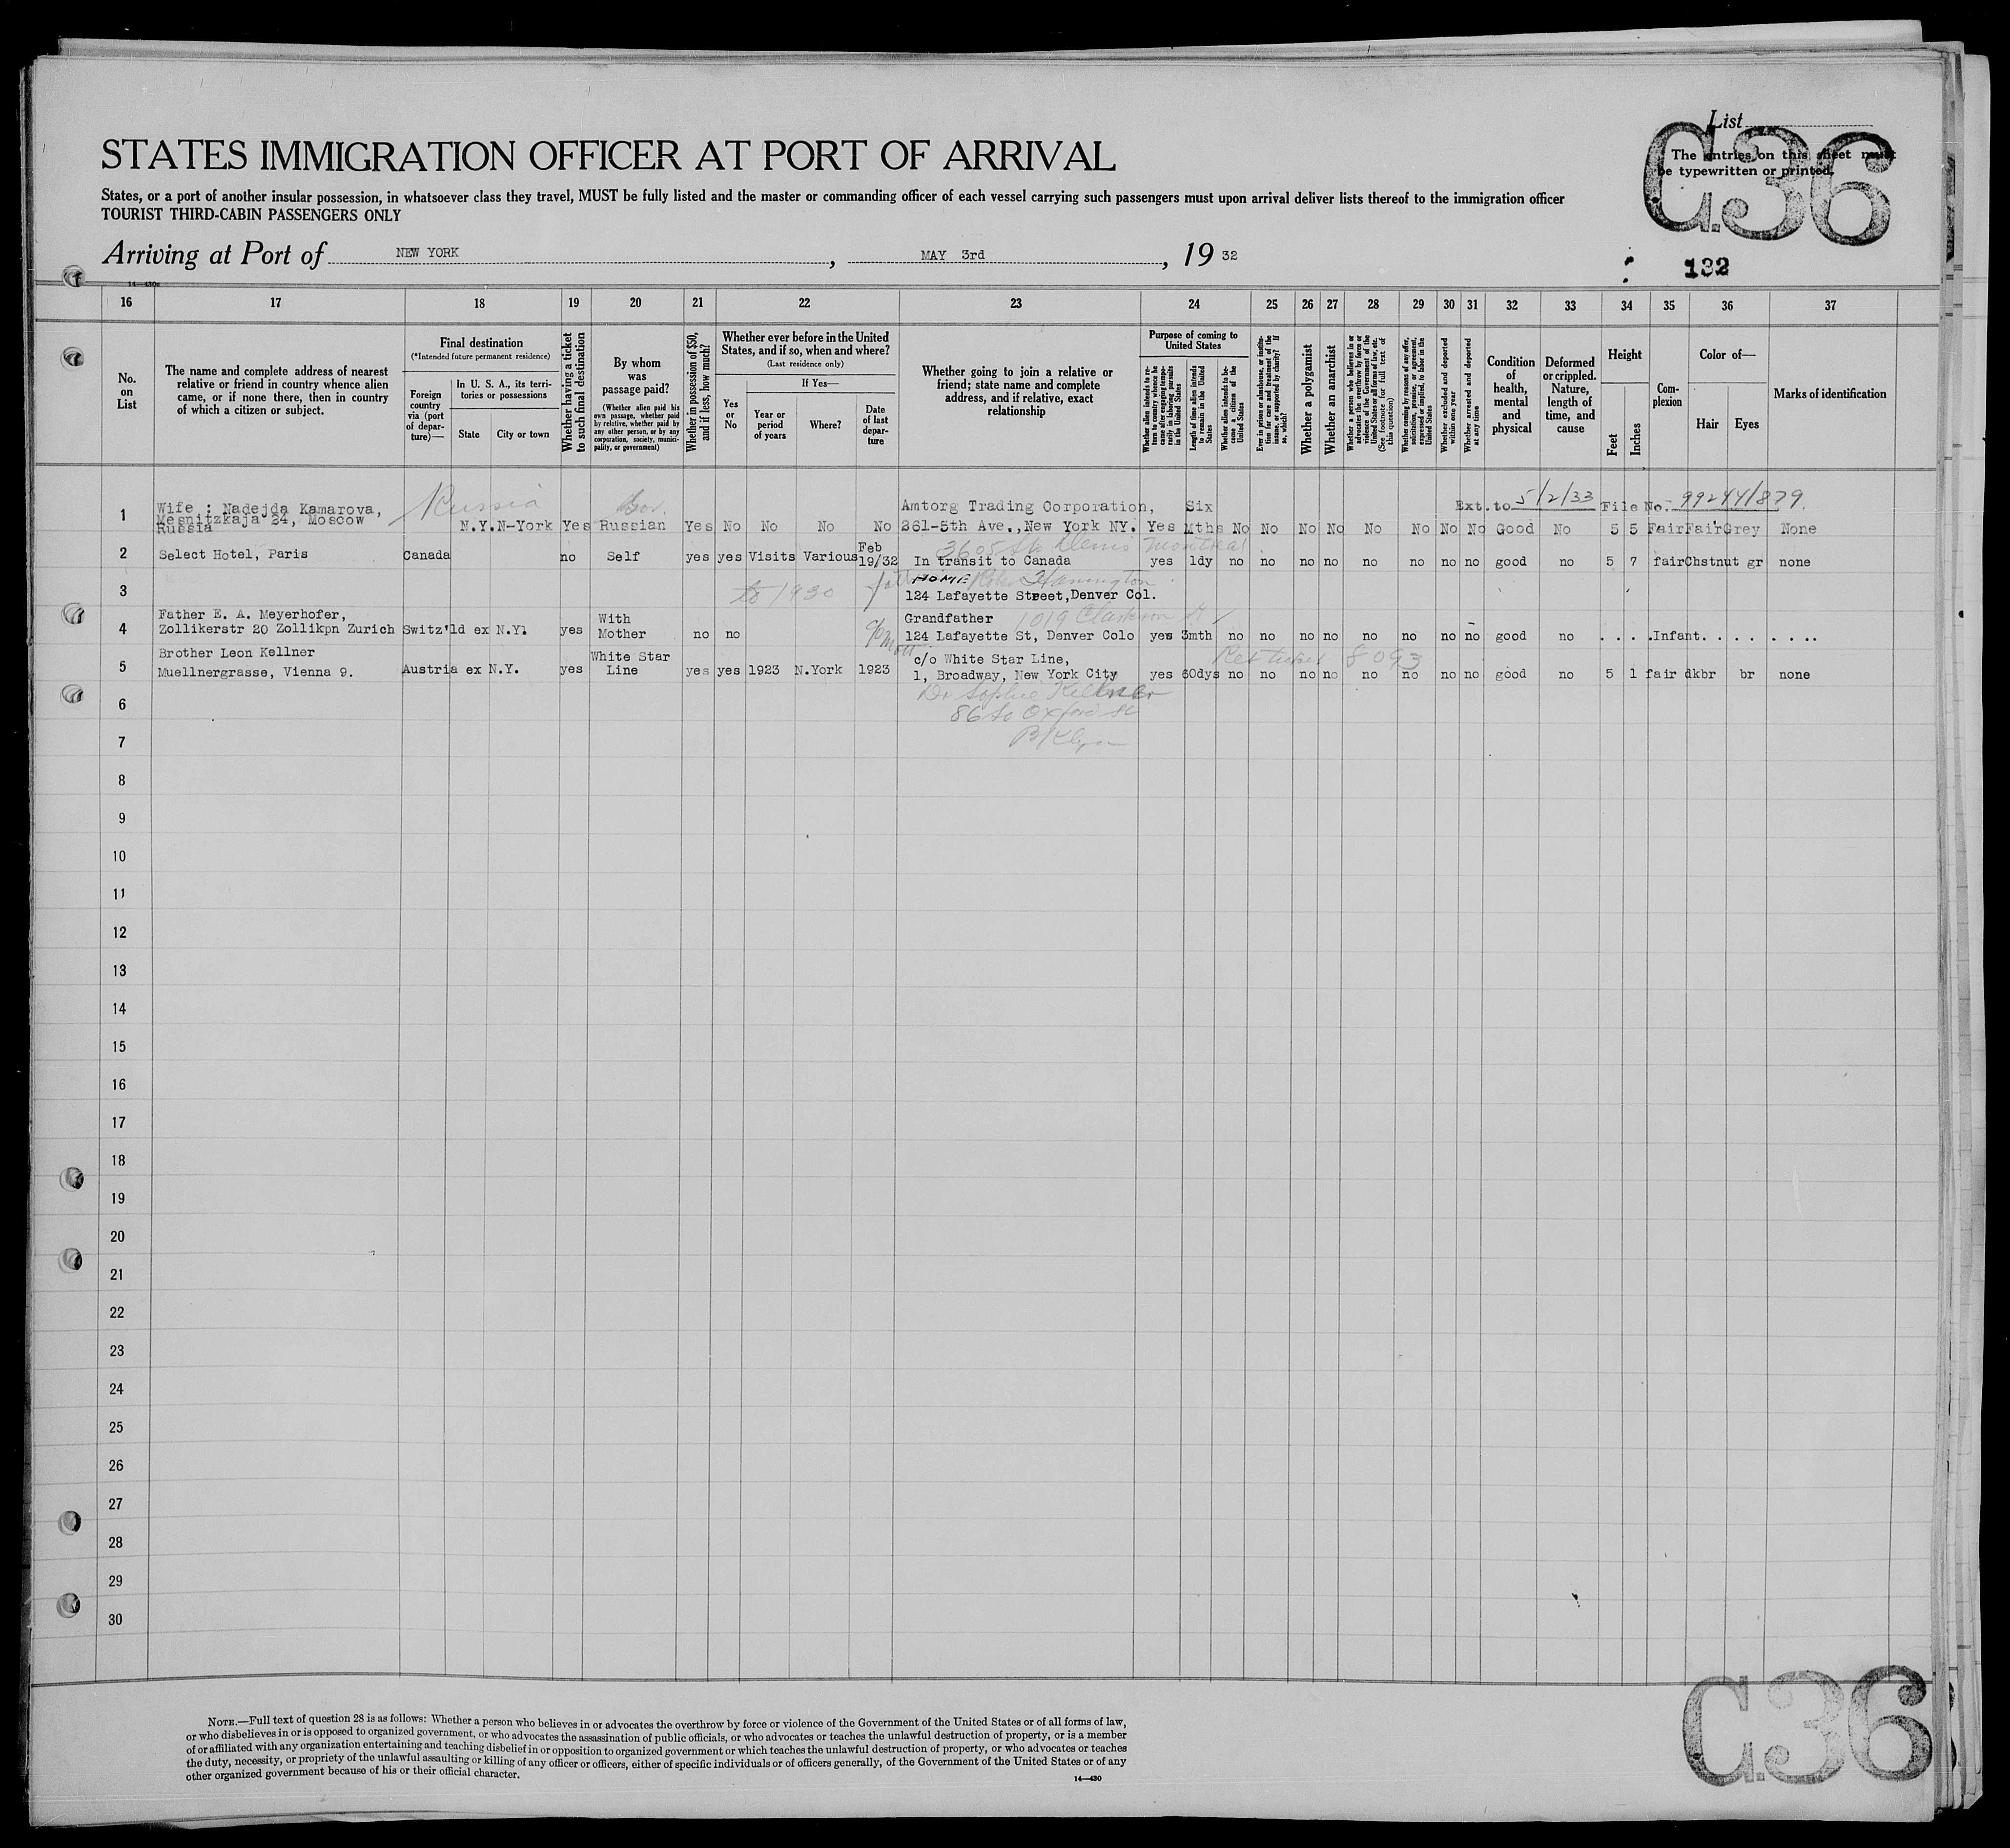 List
G.36
The entries on this sheet must
be typewritten or printed.
STATES IMMIGRATION OFFICER AT PORT OF ARRIVAL
States, or a port of another insular possession, in whatsoever class they travel, MUST be fully listed and the master or commanding officer of each vessel carrying such passengers must upon arrival deliver lists thereof to the immigration officer
TOURIST THIRD-CABIN PASSENGERS ONLY
Arriving at Port of NEW YORK, MAY 3rd, 19 32
132
14—430a
16 17 18 19 20 21 22 23 24 25 26 27 28 29 30 31 32 33 34 35 36 37
No. on List
The name and complete address of nearest relative or friend in country whence alien came, or if none there, then in country of which a citizen or subject.
Final destination
(*Intended future permanent residence)
Foreign country via (port of departure)—
In U. S. A., its territories or possessions
State
City or town
Whether having a ticket to such final destination
By whom was passage paid?
(Whether alien paid his own passage, whether paid by relative, whether paid by any other person, or by any corporation, society, municipality, or government)
Whether in possession of $50, and if less, how much?
Whether ever before in the United States, and if so, when and where?
(Last residence only)
Yes or No
If Yes—
Year or period of years
Where?
Date of last departure
Whether going to join a relative or friend; state name and complete address, and if relative, exact relationship
Purpose of coming to United States
Whether alien intends to return to country whence he came after engaging temporarily in laboring pursuits in the United States
Length of time alien intends to remain in the United States
Whether alien intends to become a citizen of the United States
Ever in prison or almshouse, or institution for care and treatment of the insane, or supported by charity? If so, which?
Whether a polygamist
Whether an anarchist
Whether a person who believes in or advocates the overthrow by force or violence of the Government of the United States or all forms of law, etc. (See footnote for full text of this question)
Whether coming by reasons of any offer, solicitation, promise, or agreement, expressed or implied, to labor in the United States
Whether excluded and deported within one year
Whether arrested and deported at any time
Condition of health, mental and physical
Deformed or crippled. Nature, length of time, and cause
Height
Feet
Inches
Complexion
Color of—
Hair
Eyes
Marks of identification
Russia Gov. Amtorg Trading Corporation, Six Ext. to 5/2/33 File No. 99244/879.
1 Wife : Nadejda Kamarova,
Mesnitzkaja 24, Moscow
Russia N.Y. N-York Yes Russian Yes No No No No 261-5th Ave.,New York NY. Yes Mths No No No No No No No No Good No 5 5 Fair Fair Grey None
3605 St Denis Montreal
2 Select Hotel, Paris Canada no Self yes yes Visits Various Feb 19/32 In transit to Canada yes 1dy no no no no no no no no good no 5 7 fair Chstnut gr none
3 to 1930 HOME Harrington
124 Lafayette Street,Denver Col.
4 Father E. A. Meyerhofer, With Grandfather 1019 Clarkson St
Zollikerstr 20 Zollikpn Zurich Switz'ld ex N.Y. yes Mother no no 124 Lafayette St, Denver Colo yes 3mth no no no no no no no no good no . . . .Infant. . . . . . . . .
5 Brother Leon Kellner White Star c/o White Star Line, Ret ticket 8093
Muellnergrasse, Vienna 9. Austria ex N.Y. yes Line yes yes 1923 N.York 1923 1, Broadway, New York City yes 60dys no no no no no no no no good no 5 1 fair dkbr br none
Dr Sophie Kellner
6 86 So Oxford St
7 BKlyn
8
9
10
11
12
13
14
15
16
17
18
19
20
21
22
23
24
25
26
27
28
29
30
NOTE.—Full text of question 28 is as follows: Whether a person who believes in or advocates the overthrow by force or violence of the Government of the United States or of all forms of law,
or who disbelieves in or is opposed to organized government, or who advocates the assassination of public officials, or who advocates or teaches the unlawful destruction of property, or is a member
of or affiliated with any organization entertaining and teaching disbelief in or opposition to organized government or which teaches the unlawful destruction of property, or who advocates or teaches
the duty, necessity, or propriety of the unlawful assaulting or killing of any officer or officers, either of specific individuals or of officers generally, of the Government of the United States or of any
other organized government because of his or their official character.
14—430
G.36